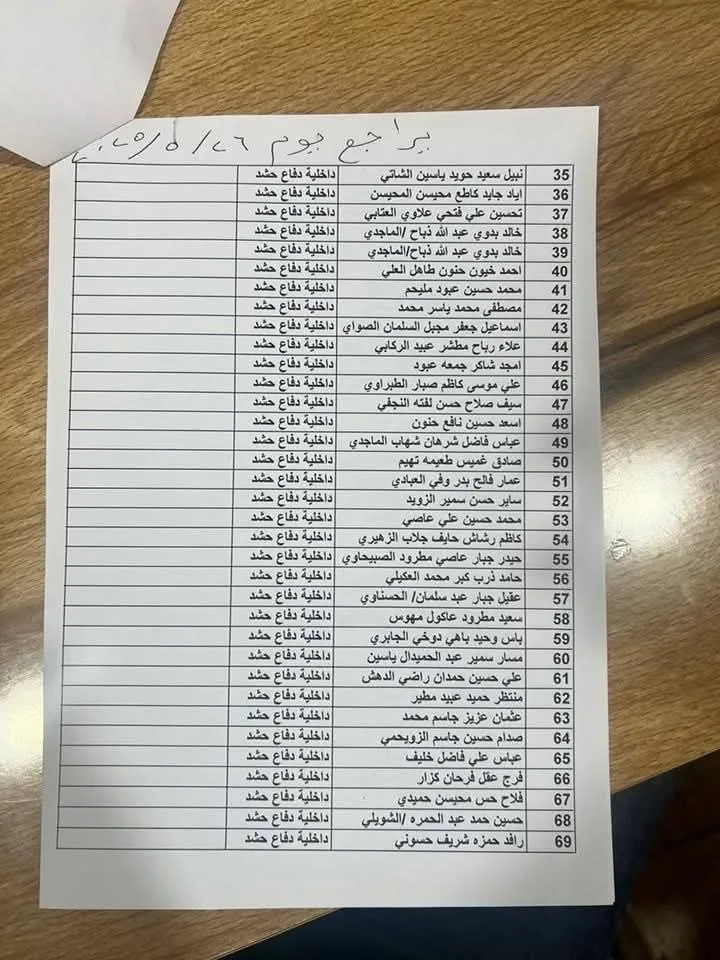 يراجع يوم ٢٦/٥/٢٠٢٥
35 نبيل سعيد حويد ياسين الشاتي داخلية دفاع حشد
36 اياد جايد كاطع محيسن المحيسن داخلية دفاع حشد
37 تحسين علي فتحي علاوي العتابي داخلية دفاع حشد
38 خالد بدوي عبد الله ذباح /الماجدي داخلية دفاع حشد
39 خالد بدوي عبد الله ذباح/الماجدي داخلية دفاع حشد
40 احمد خيون حنون طاهل العلي داخلية دفاع حشد
41 محمد حسين عبود مليحم داخلية دفاع حشد
42 مصطفى محمد ياسر محمد داخلية دفاع حشد
43 اسماعيل جعفر مجبل السلمان الصواي داخلية دفاع حشد
44 علاء رباح مطشر عبيد الركابي داخلية دفاع حشد
45 امجد شاكر جمعه عبود داخلية دفاع حشد
46 علي موسى كاظم صبار الطبراوي داخلية دفاع حشد
47 سيف صلاح حسن لفته النجفي داخلية دفاع حشد
48 اسعد حسين نافع حنون داخلية دفاع حشد
49 عباس فاضل شرهان شهاب الماجدي داخلية دفاع حشد
50 صادق غميس طعيمه تهيم داخلية دفاع حشد
51 عمار فالح بدر وفي العبادي داخلية دفاع حشد
52 ساير حسن سمير الزويد داخلية دفاع حشد
53 محمد حسين علي عاصي داخلية دفاع حشد
54 كاظم رشاش حايف جلاب الزهيري داخلية دفاع حشد
55 حيدر جبار عاصي مطرود الصبيحاوي داخلية دفاع حشد
56 حامد ذرب كبر محمد العكيلي داخلية دفاع حشد
57 عقيل جبار عبد سلمان/ الحسناوي داخلية دفاع حشد
58 سعيد مطرود عاكول مهوس داخلية دفاع حشد
59 باس وحيد باهي دوخي الجابري داخلية دفاع حشد
60 مسار سمير عبد الحميدال ياسين داخلية دفاع حشد
61 علي حسين حمدان راضي الدهش داخلية دفاع حشد
62 منتظر حميد عبيد مطير داخلية دفاع حشد
63 عثمان عزيز جاسم محمد داخلية دفاع حشد
64 صدام حسين جاسم الزويحمي داخلية دفاع حشد
65 عباس علي فاضل خليف داخلية دفاع حشد
66 فرج عقل فرحان كزار داخلية دفاع حشد
67 فلاح حس محيسن حميدي داخلية دفاع حشد
68 حسين حمد عبد الحمره /الشويلي داخلية دفاع حشد
69 رافد حمزه شريف حسوني داخلية دفاع حشد